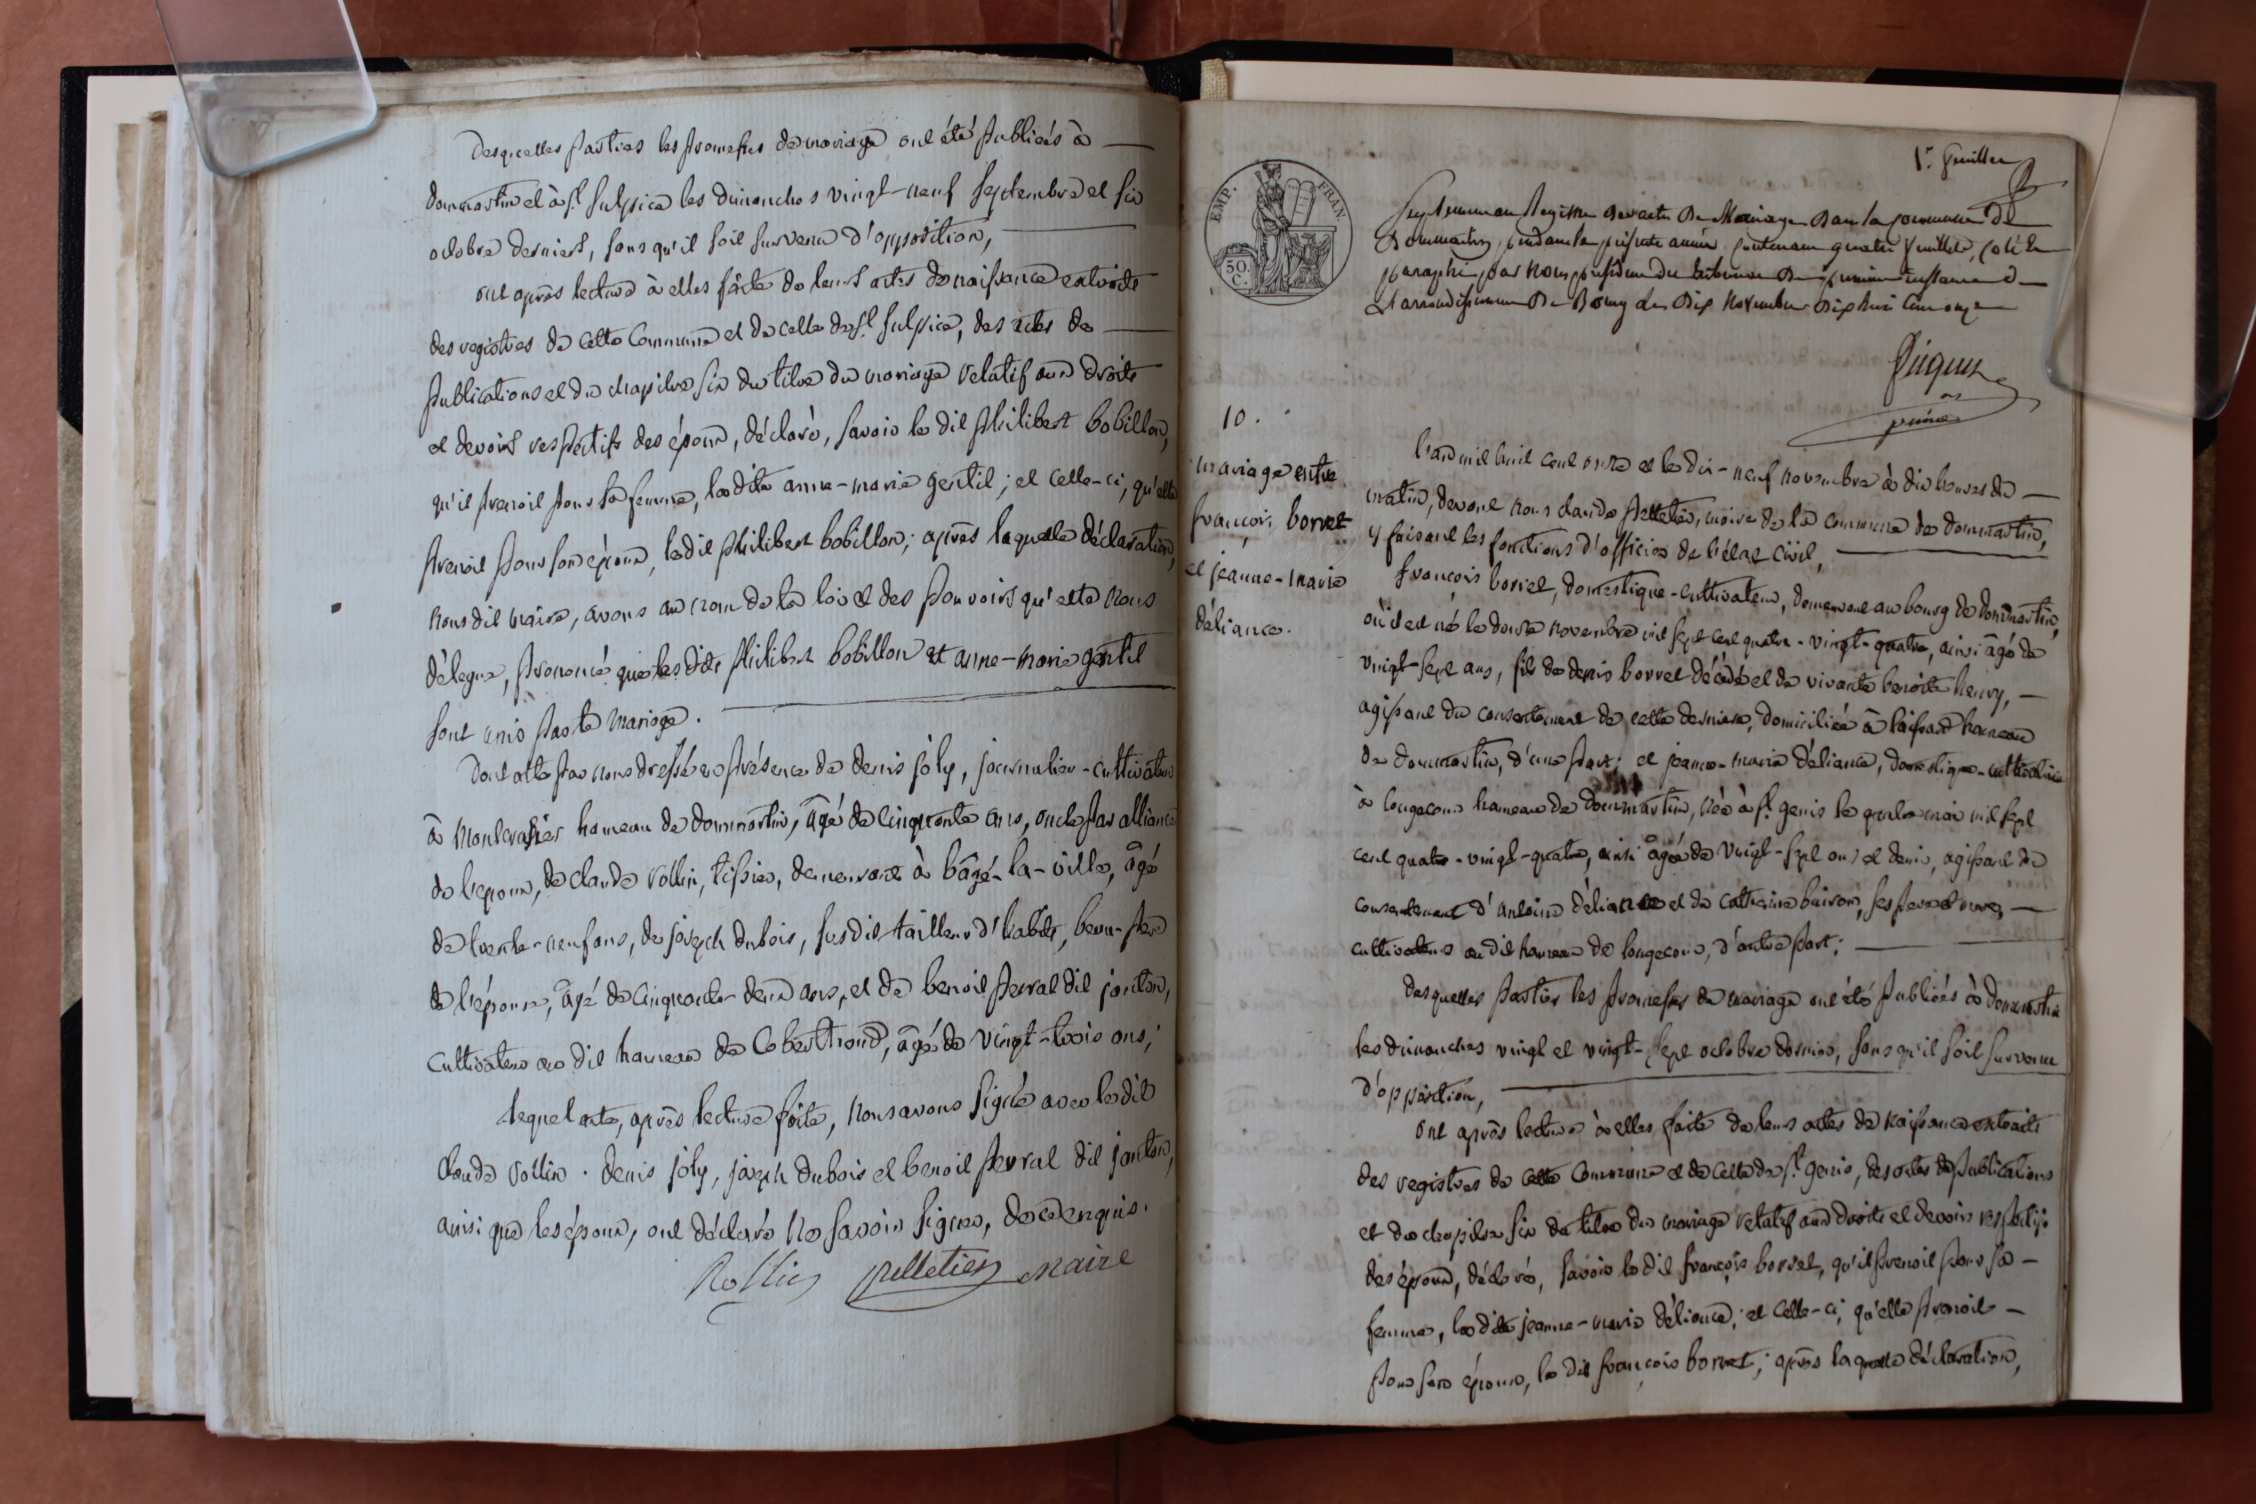 desquelles parties les promesses de mariage ont été publiées à
dommartin et à st. sulpice les dimanches vingt-neuf septembre et six
octobre derniers, sans qu'il soit survenu d'opposition,
ont après lecture à elles faite de leurs actes de naissance extraits
des registres de cette Commune et de celle de st. sulpice, des actes de
publications et du chapitre six du titre du mariage relatif aux droits
et devoirs respectifs des époux, déclaré, savoir le dit philibert bobillon,
qu'il prenoit pour sa femme, la dite anne-marie gentil; et celle-ci, qu'elle
prenoit pour son époux, ledit philibert bobillon; après laquelle déclaration,
nous dit maire, avons au nom de la loi et des pouvoirs qu'elle nous
délegue, prononcé que les dits philibert bobillon et anne-marie gentil
sont unis par le mariage.
Dont acte par nous dressé en présence de denis joly, journalier-cultivateur
à hameau de dommartin, âgé de cinquante ans, oncle par alliance
de l'epoux, de claude rollin, tissier, demeurant à bâgé-la-ville, âgé
de trente-neuf ans, de joseph dubois, susdit tailleur d'habits, beau-père
de l'épouse, âgé de cinquante-deux ans, et de benoit perral dit janton,
cultivateur au dit hameau de Coberthoud, âgé de vingt-trois ans;
lequel acte, après lecture faite, nous avons signé avec le dit
claude rollin. denis joly, joseph dubois et benoit perral dit janton,
ainsi que les époux, ont déclaré ne savoir signer, de ce enquis.
Rollin pelletier maire
1r. feuillet
EMP. FRAN
50. C.
Supplement au Registre des actes de Mariage dans la commune de
Dommartin, pendant la présente année, contenant quatre feuillets, coté et
paraphé par nous président du tribunal de première instance de
l'arrondissement de Bourg le dix novembre dix huit cent onze
10.
mariage entre
françois borret
et jeanne-marie
déliance.
l'an mil huit cent onze et le dix-neuf novembre à dix heures du
matin, devant nous claude pelletier, maire de la commune de dommartin,
y faisant les fonctions d'officier de l'état civil,
françois borret, domestique-cultivateur, demeurant au bourg de dommartin,
où il est né le douze novembre mil sept cent quatre-vingt-quatre, ainsi âgé de
vingt-sept ans, fils de denis borret décédé et de vivante benoite henry,
agissant du consentement de cette derniere, domiciliée à hameau
de dommartin, d'une part; et jeanne-marie déliance, domestique-cultivatrice
à longecour hameau de dommartin, née à st. genis le quatre mai mil sept
cent quatre-vingt-quatre, ainsi âgée de vingt-sept ans et demi, agissant du
consentement d'antoine déliance et de catherine ses pere et mere,
cultivateurs au dit hameau de longecour, d'autre part;
desquelles parties les promesses de mariage ont été publiées à dommartin
les dimanches vingt et vingt-sept octobre dernier, sans qu'il soit survenu
d'opposition,
ont après lecture à elles faite de leurs actes de naissance extraits
des registres de cette Commune et de celle de st. genis, des actes de publications
et du chapitre six du titre du mariage relatif aux droits et devoirs respectifs
des époux, déclaré, savoir le dit françois borret, qu'il prenoit pour sa
femme, la dite jeanne-marie déliance; et celle-ci, qu'elle prenoit
pour son époux, le dit françois borret; après laquelle déclaration,